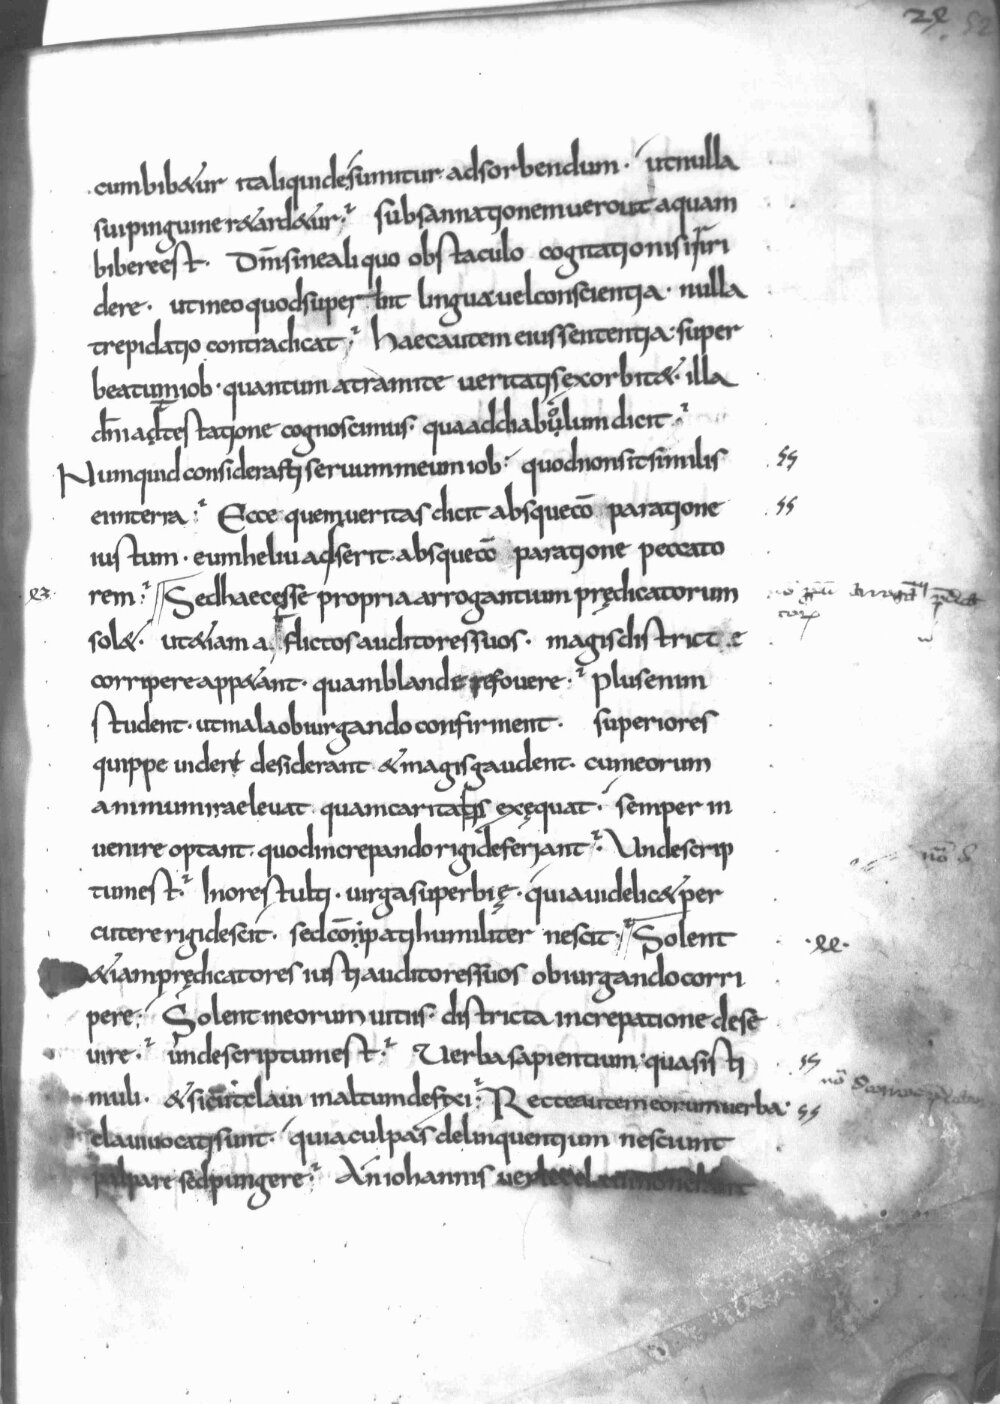 28. 52
cumbib&ur italiquidesumitur adsorbendum · utnulla
suipinguiner&ard&ur · subsannationemuerout aquam
bibereest · Dm̄sinealiquo obstaculo cogitationisirri
dere · utineoquodsuper bit linguauelconscientia · nulla
trepidatio contradicat · haecautem eiussententia super
beatumiob · quantum atramite ueritatisexorbit& · illa
dn̄i adtestatione cognoscimus · quaaddiabolumdicit ·
Numquid considerasti seruummeumiob · quodnonsitsimilis
eiinterra · Ecce quemueritas dicit absquecō paratione
iustum · eumheliu adserit absquecō paratione peccato
rem · Sedhaecesse propriaarrogantium prędicatorum
sol& · ut&iam afflictosauditoressuos · magisdistricte
corripereapp&ant · quamblande refouere · plusenim
student · utmalaobiurgandoconfirment · superiores
quippe uideri desiderant &magisgaudent · cumeorum
animumiraeleuat quamcaritas exęquat · semper in
uenire optant · quodincrepandorigideferiant · Undescrip
tumest · Inorestulti · uirgasuperbię · quiauidelic&per
cutererigidescit · sedconpatihumiliter nescit · Solent
&iamprędicatores iustiauditoressuos obiurgandocorri
pere · Solent ineorumuitiis districta increpatione dese
uire · undescriptumest · Uerbasapientium · quasisti
muli · &sicutclaui inaltumdefixi · Recteautemeorumuerba ·
clauiuocatisunt · quiaculpas delinquentium nesciunt
palpare sedpungere · An̄iohannis